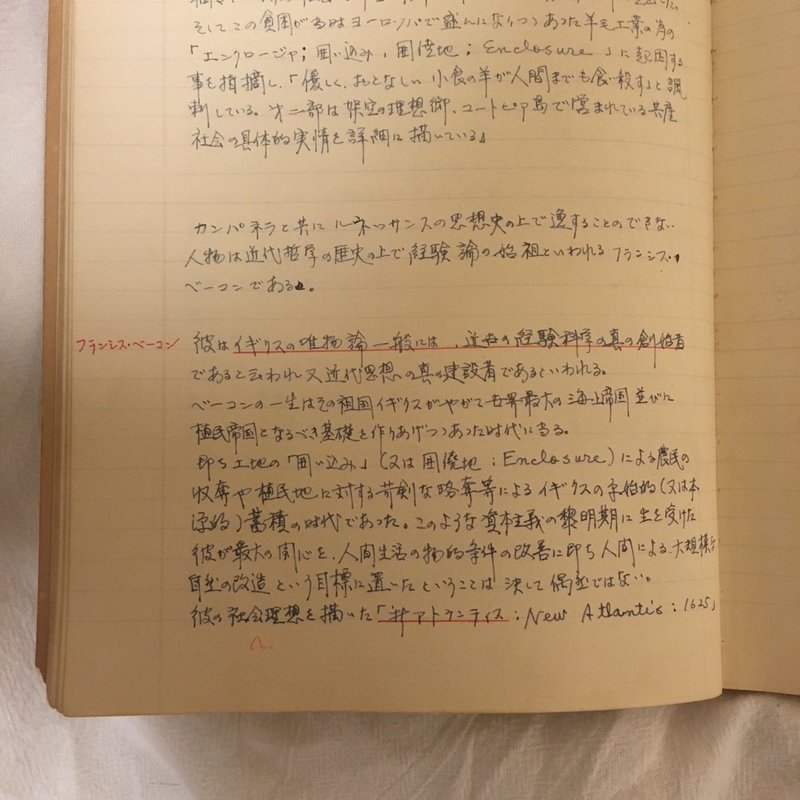 そしてこの貧困が当時ヨーロッパで盛んになりつつあった羊毛工業の為の
「エンクロージャ；囲い込み，囲墝地；Enclosure」に起因する
事を指摘し、「優しく、おとなしい小食の羊が人間までも食い殺す」と諷
刺している。㐧二部は架空の理想郷、ユートピア島で営まれている共産
社会の具体的実情を詳細に描いている。
カンパネラと共にルネッサンスの思想史の上で逸することのできない
人物は近代哲学の歴史の上で経験論の始祖といわれるフランシス・
ベーコンである。
フランシス・ベーコン
彼はイギリスの唯物論一般には、近世の経験科学の真の創始者
であると云われ又近代思想の真の建設者であるといわれる。
ベーコンの一生はその祖国イギリスがやがて世界最大の海上帝国並びに
植民帝国となるべき基礎を作りあげつつあった時代に当る。
即ち土地の「囲い込み」（又は囲墝地；Enclosure）による農民の
収奪や植民地に対する苛剣な略奪等によるイギリスの原始的（又は本
源的）蓄積の時代であった。このような資本主義の黎明期に生を受けた
彼が最大の関心を、人間生活の物的条件の改善に即ち人間による、大規模な
自然の改造という目標に置いたということは決して偶然ではない。
彼の社会理想を描いた「新アトランティス；New Atlantis：1625」